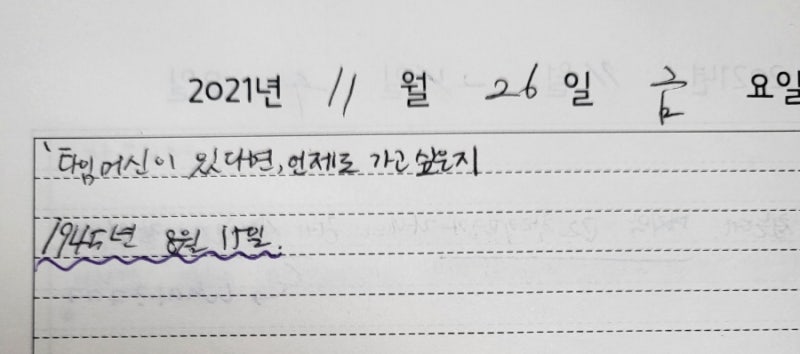 2021년 11 월 26 일 금 요일
'타임머신이 있다면, 언제로 가고 싶은지
1945년 8월 15일.